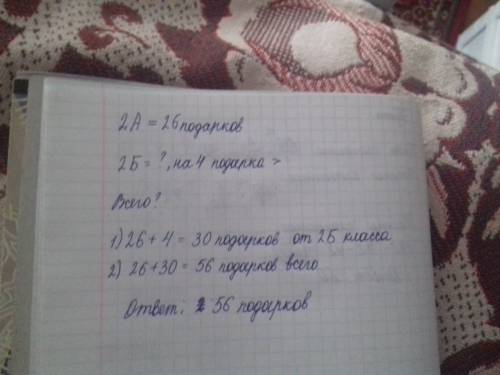 2А = 26 подарков
2Б = ?, на 4 подарка >
Всего?
1) 26 + 4 = 30 подарков от 2Б класса
2) 26 + 30 = 56 подарков всего
Ответ: 56 подарков